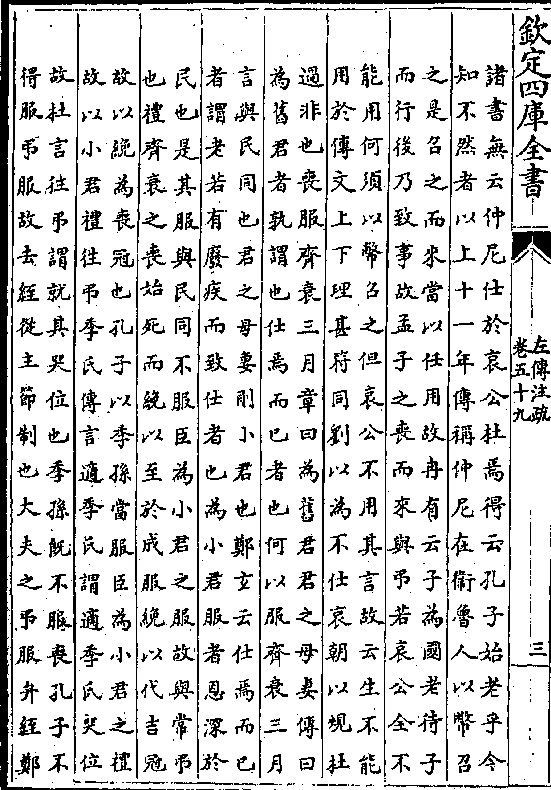 欽定四庫全書
左傳注疏
卷五十九
三
諸書無云仲尼仕於哀公杜焉得云孔子始老乎今
知不然者以上十一年傳稱仲尼在衛魯人以幣召
之是召之而來當以任用故冉有云子為國老待子
而行後乃致事故孟子之喪而來與弔若哀公全不
能用何須以幣召之但哀公不用其言故云生不能
用於傳文上下理甚符同劉以為不仕哀朝以規杜
過非也喪服齊衰三月章曰為舊君君之母妻傳曰
為舊君者孰謂也仕焉而巳者也何以服齊衰三月
言與民同也君之母妻則小君也鄭玄云仕焉而巳
者謂老若有廢疾而致仕者也為小君服者恩深於
民也是其服與民同不服臣為小君之服故與常弔
也禮齊衰之喪始死而絻以至於成服絻以代吉冠
故以絻為喪冠也孔子以季孫當服臣為小君之禮
故以小君禮往弔季氏傳言適季氏謂適季氏哭位
故杜言往弔謂就其哭位也季孫旣不服喪孔子不
得服弔服故去絰從主節制也大夫之弔服弁絰鄭